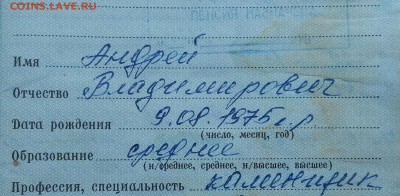 COINS.LAVE.RU
ПЕНСИЯ НАЗНАЧЕНА
Имя Андрей
Отчество Владимирович
Дата рождения 9.08.1975г.р
(число, месяц, год)
Образование среднее
(н/среднее, среднее, н/высшее, высшее)
Профессия, специальность каменщик